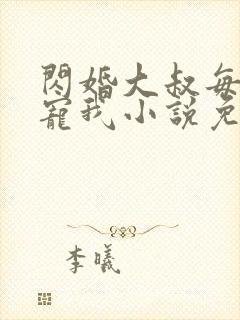 閃婚大叔每
寵我小說免
李曦